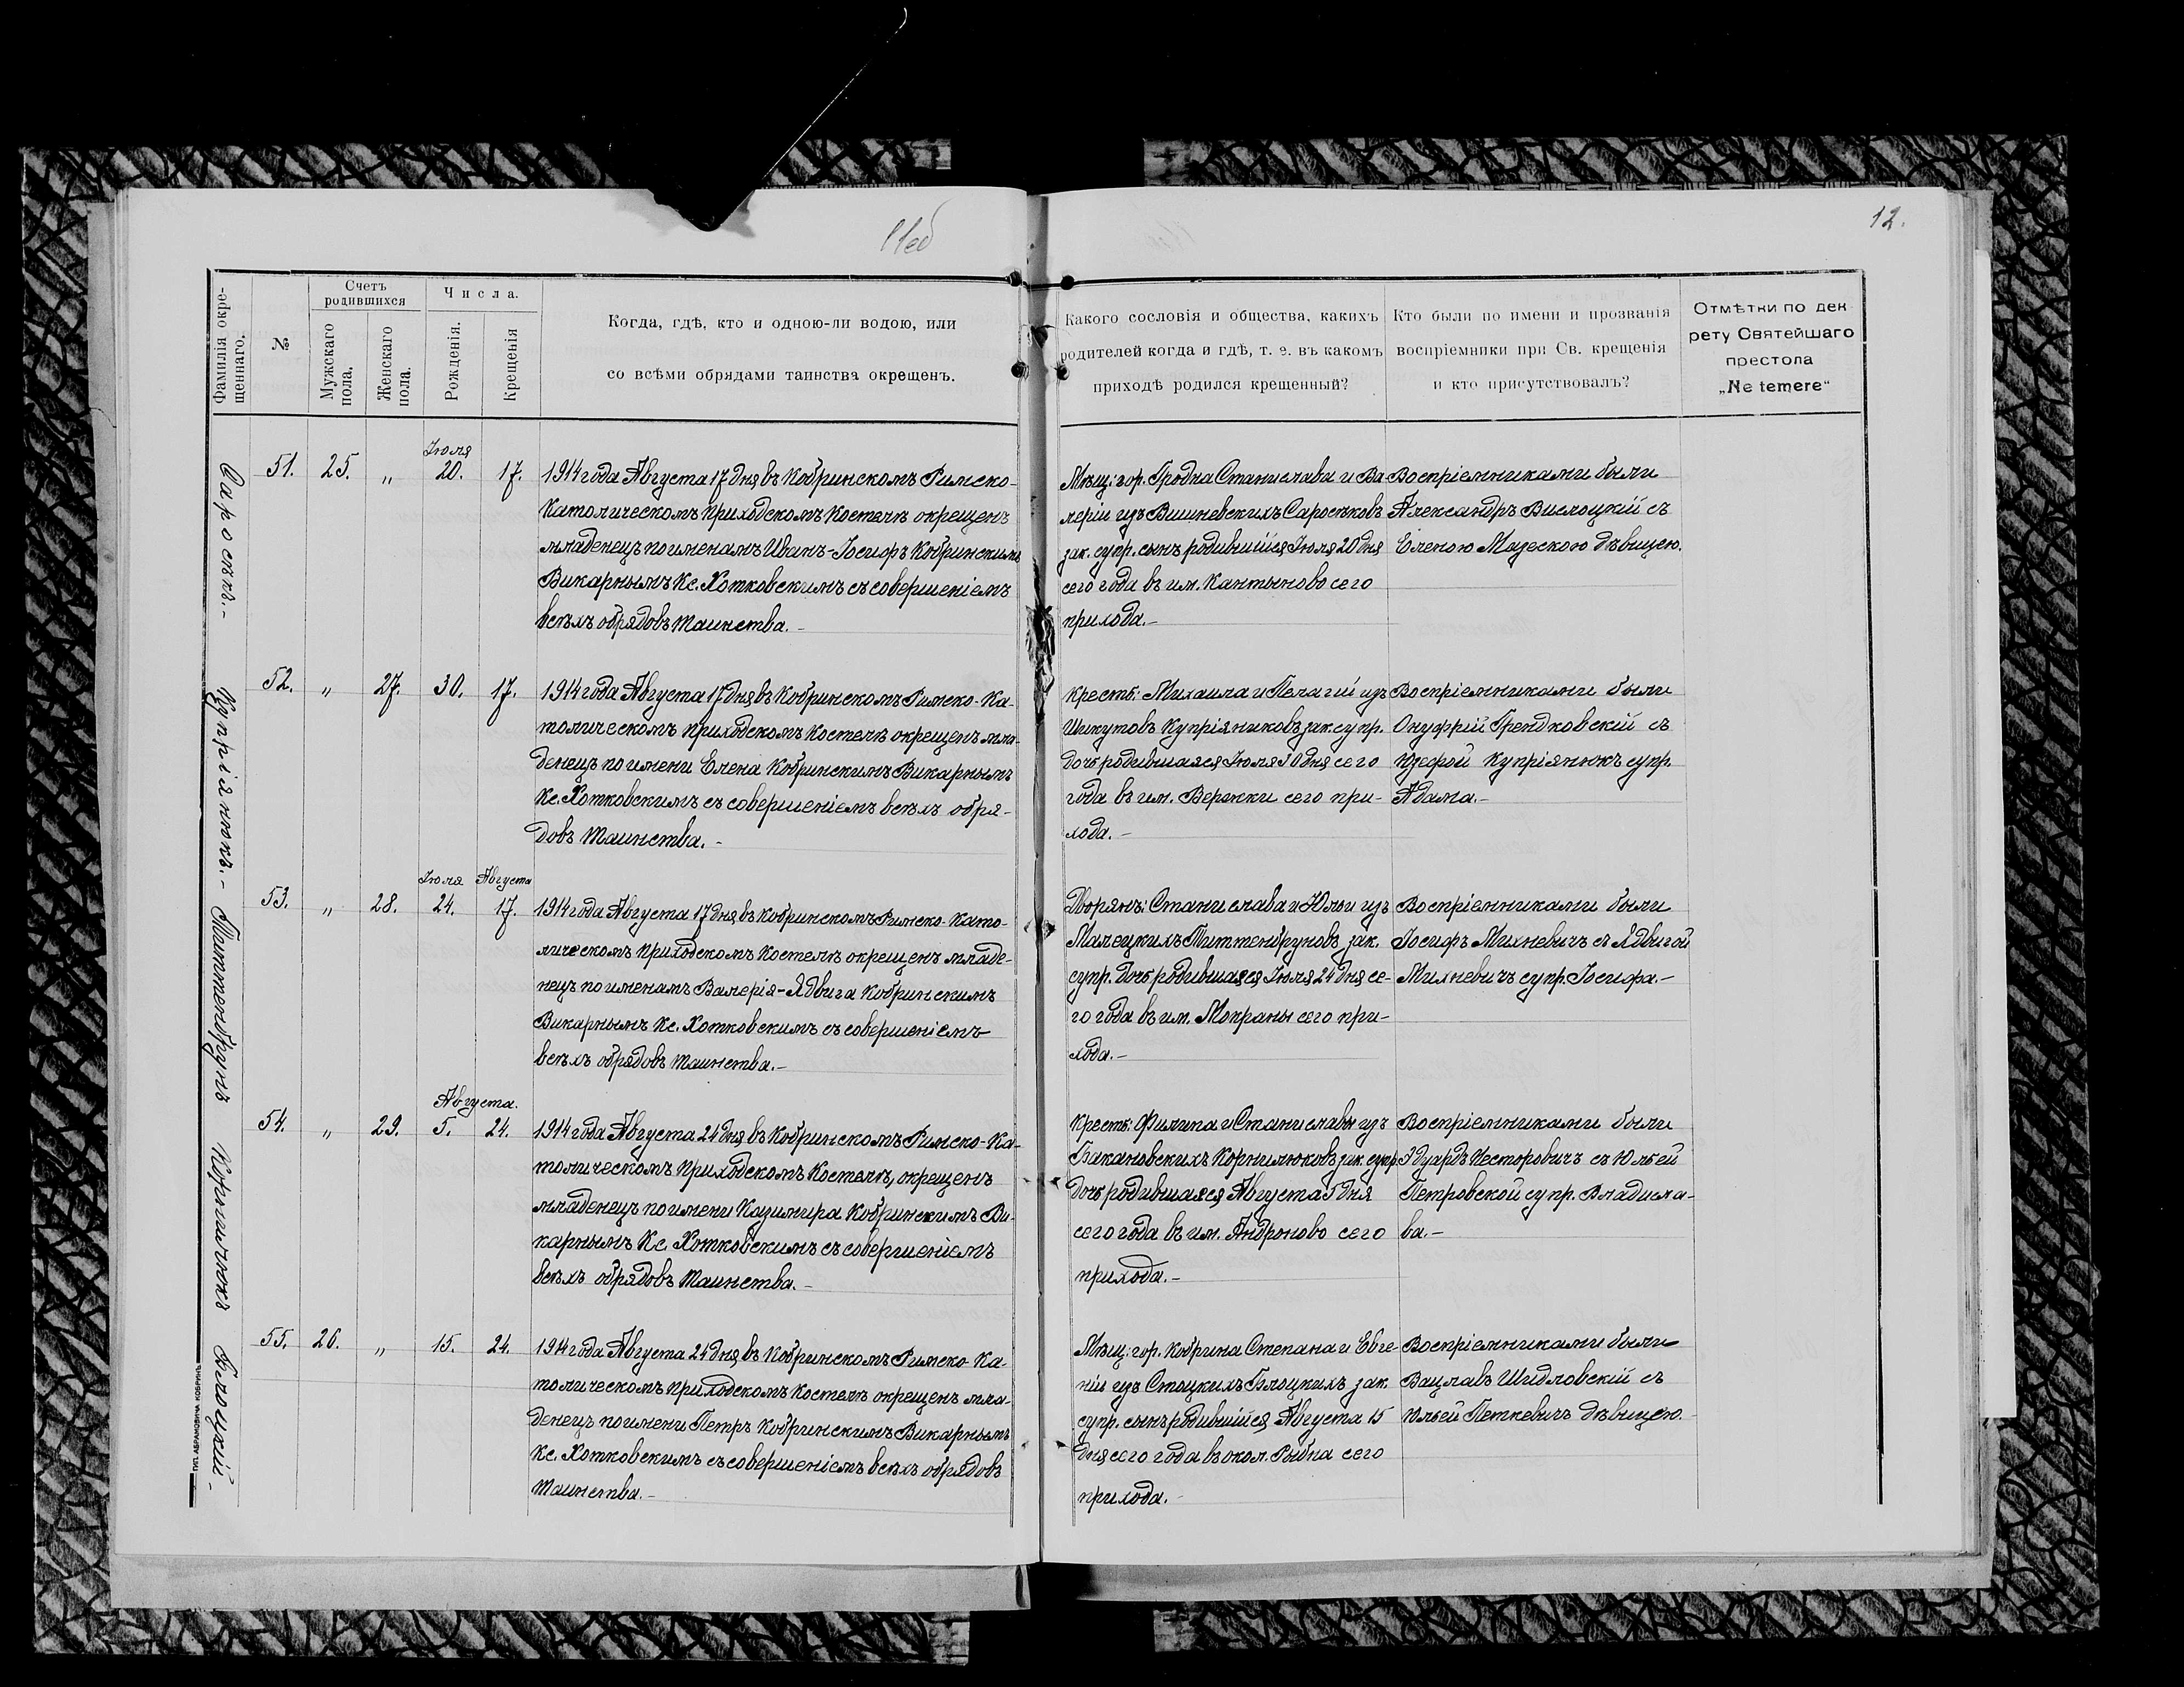 11об
12.
Фамилія окре-
щеннаго.
№
Счетъ
родившихся
Мужскаго
пола.
Женскаго
пола.
Числа.
Рожденія.
Крещенія
Когда, гдѣ, кто и одною-ли водою, или
со всѣми обрядами таинства окрещенъ.
Какого сословія и общества, какихъ
родителей когда и гдѣ, т. е. въ какомъ
приходѣ родился крещенный?
Кто были по имени и прозванія
воспріемники при Св. крещенія
и кто присутствовалъ?
Отмѣтки по дек
рету Святейшаго
престола
„Ne temere“
Саросѣкъ.-
51. 25. „ Іюля 20. 17.
1914 года Августа 17 дня въ Кобринскомъ Римско-
Католическомъ приходскомъ Костелѣ окрещенъ
младенецъ по именамъ Иванъ-Іосифъ Кобринскимъ
Викарнымъ Кс. Хотковскимъ съ совершеніемъ
всѣхъ обрядовъ таинства.-
Мѣщ: гор. Гродна Станислава и Ва-
леріи изъ Вишневскихъ Саросѣковъ
зак. супр. сынъ родившійся Іюля 20 дня
сего года въ им. Кантыново сего
прихода.-
Воспріемниками были
Александръ Вислоцкій съ
Еленою Мазескою дѣвицею.
Купріянюкъ.-
52. „ 27. 30. 17.
1914 года Августа 17 дня въ Кобринскомъ Римско-Ка-
толическомъ приходскомъ Костелѣ окрещенъ мла-
денецъ по имени Елена Кобринскимъ Викарнымъ
Кс. Хотковскимъ съ совершеніемъ всѣхъ обря-
довъ таинства.-
Крестъ: Михаила и Пелагіи изъ
Шикутовъ Купріяниковъ зак. супр.
дочь родившаяся Іюля 30 дня сего
года въ им. Верхки сего при-
хода.-
Воспріемниками были
Онуфрій Грендковскій съ
Юзефой Купріянюкъ супр.
Адама.-
Титтенбрунъ
53. „ 28. Іюля 24. Августа 17.
1914 года Августа 17 дня въ Кобринскомъ Римско-Като-
лическомъ приходскомъ Костелѣ окрещенъ младе-
нецъ по именамъ Валерія-Ядвига Кобринскимъ
Викарнымъ Кс. Хотковскимъ съ совершеніемъ
всѣхъ обрядовъ таинства.-
Дворянъ: Станислава и Юліи изъ
Малецкихъ Титтенбруновъ зак.
супр. дочь родившаяся Іюля 24 дня се-
го года въ им. Мокраны сего при-
хода.-
Воспріемниками были
Іосифъ Михневичъ съ Ядвигой
Михневичъ супр. Іосифа.-
Корнилюкъ
54. „ 29. Августа. 5. 24.
1914 года Августа 24 дня въ Кобринскомъ Римско-Ка-
толическомъ приходскомъ Костелѣ, окрещенъ
младенецъ по имени Казимира Кобринскимъ Ви-
карнымъ Кс. Хотковскимъ съ совершеніемъ
всѣхъ обрядовъ таинства.-
Крестъ: Филипа и Станиславы изъ
Бакановскихъ Корнилюковъ зак. супр.
дочь родившаяся Августа 5 дня
сего года въ им. Андроново сего
прихода.-
Воспріемниками были
Эдуардъ Несторовичъ съ Юльей
Петровской супр. Владисла-
ва.-
Блоцкій-
55. 26. „ 15. 24.
1914 года Августа 24 дня въ Кобринскомъ Римско-Ка-
толическомъ приходскомъ Костелѣ окрещенъ мла-
денецъ по имени Петръ Кобринскимъ Викарнымъ
Кс. Хотковскимъ съ совершеніемъ всѣхъ обрядовъ
таинства.-
Мѣщ: гор. Кобрина Степана и Евге-
ніи изъ Стоцкихъ Блоцкихъ зак.
супр. сынъ родившійся Августа 15
дня сего года въ окол. Рыбна сего
прихода.-
Воспріемниками были
Вацлавъ Шидловскій съ
Юльей Петкевичъ дѣвицею.
ТИП. АБРАМОВИЧА КОБРИНЪ